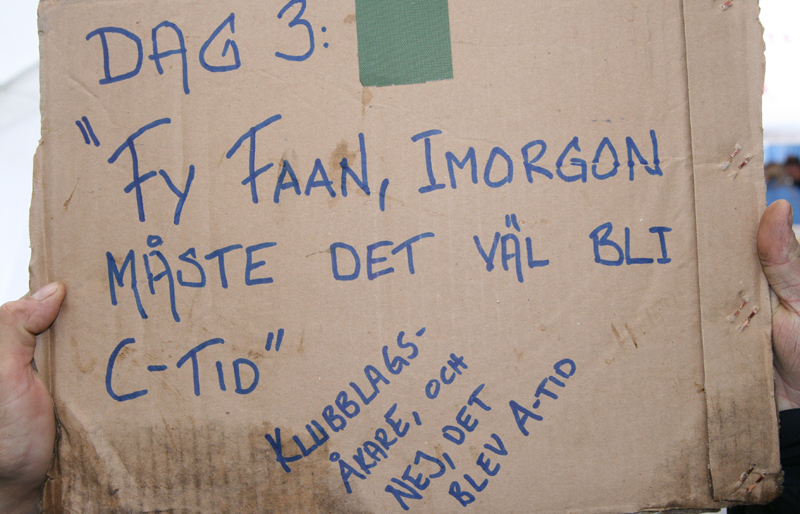 DAG 3:
"FY FAAN, IMORGON
MÅSTE DET VÄL BLI
C-TID"
KLUBBLAGS-
ÅKARE, OCH
NEJ, DET
BLEV A-TID